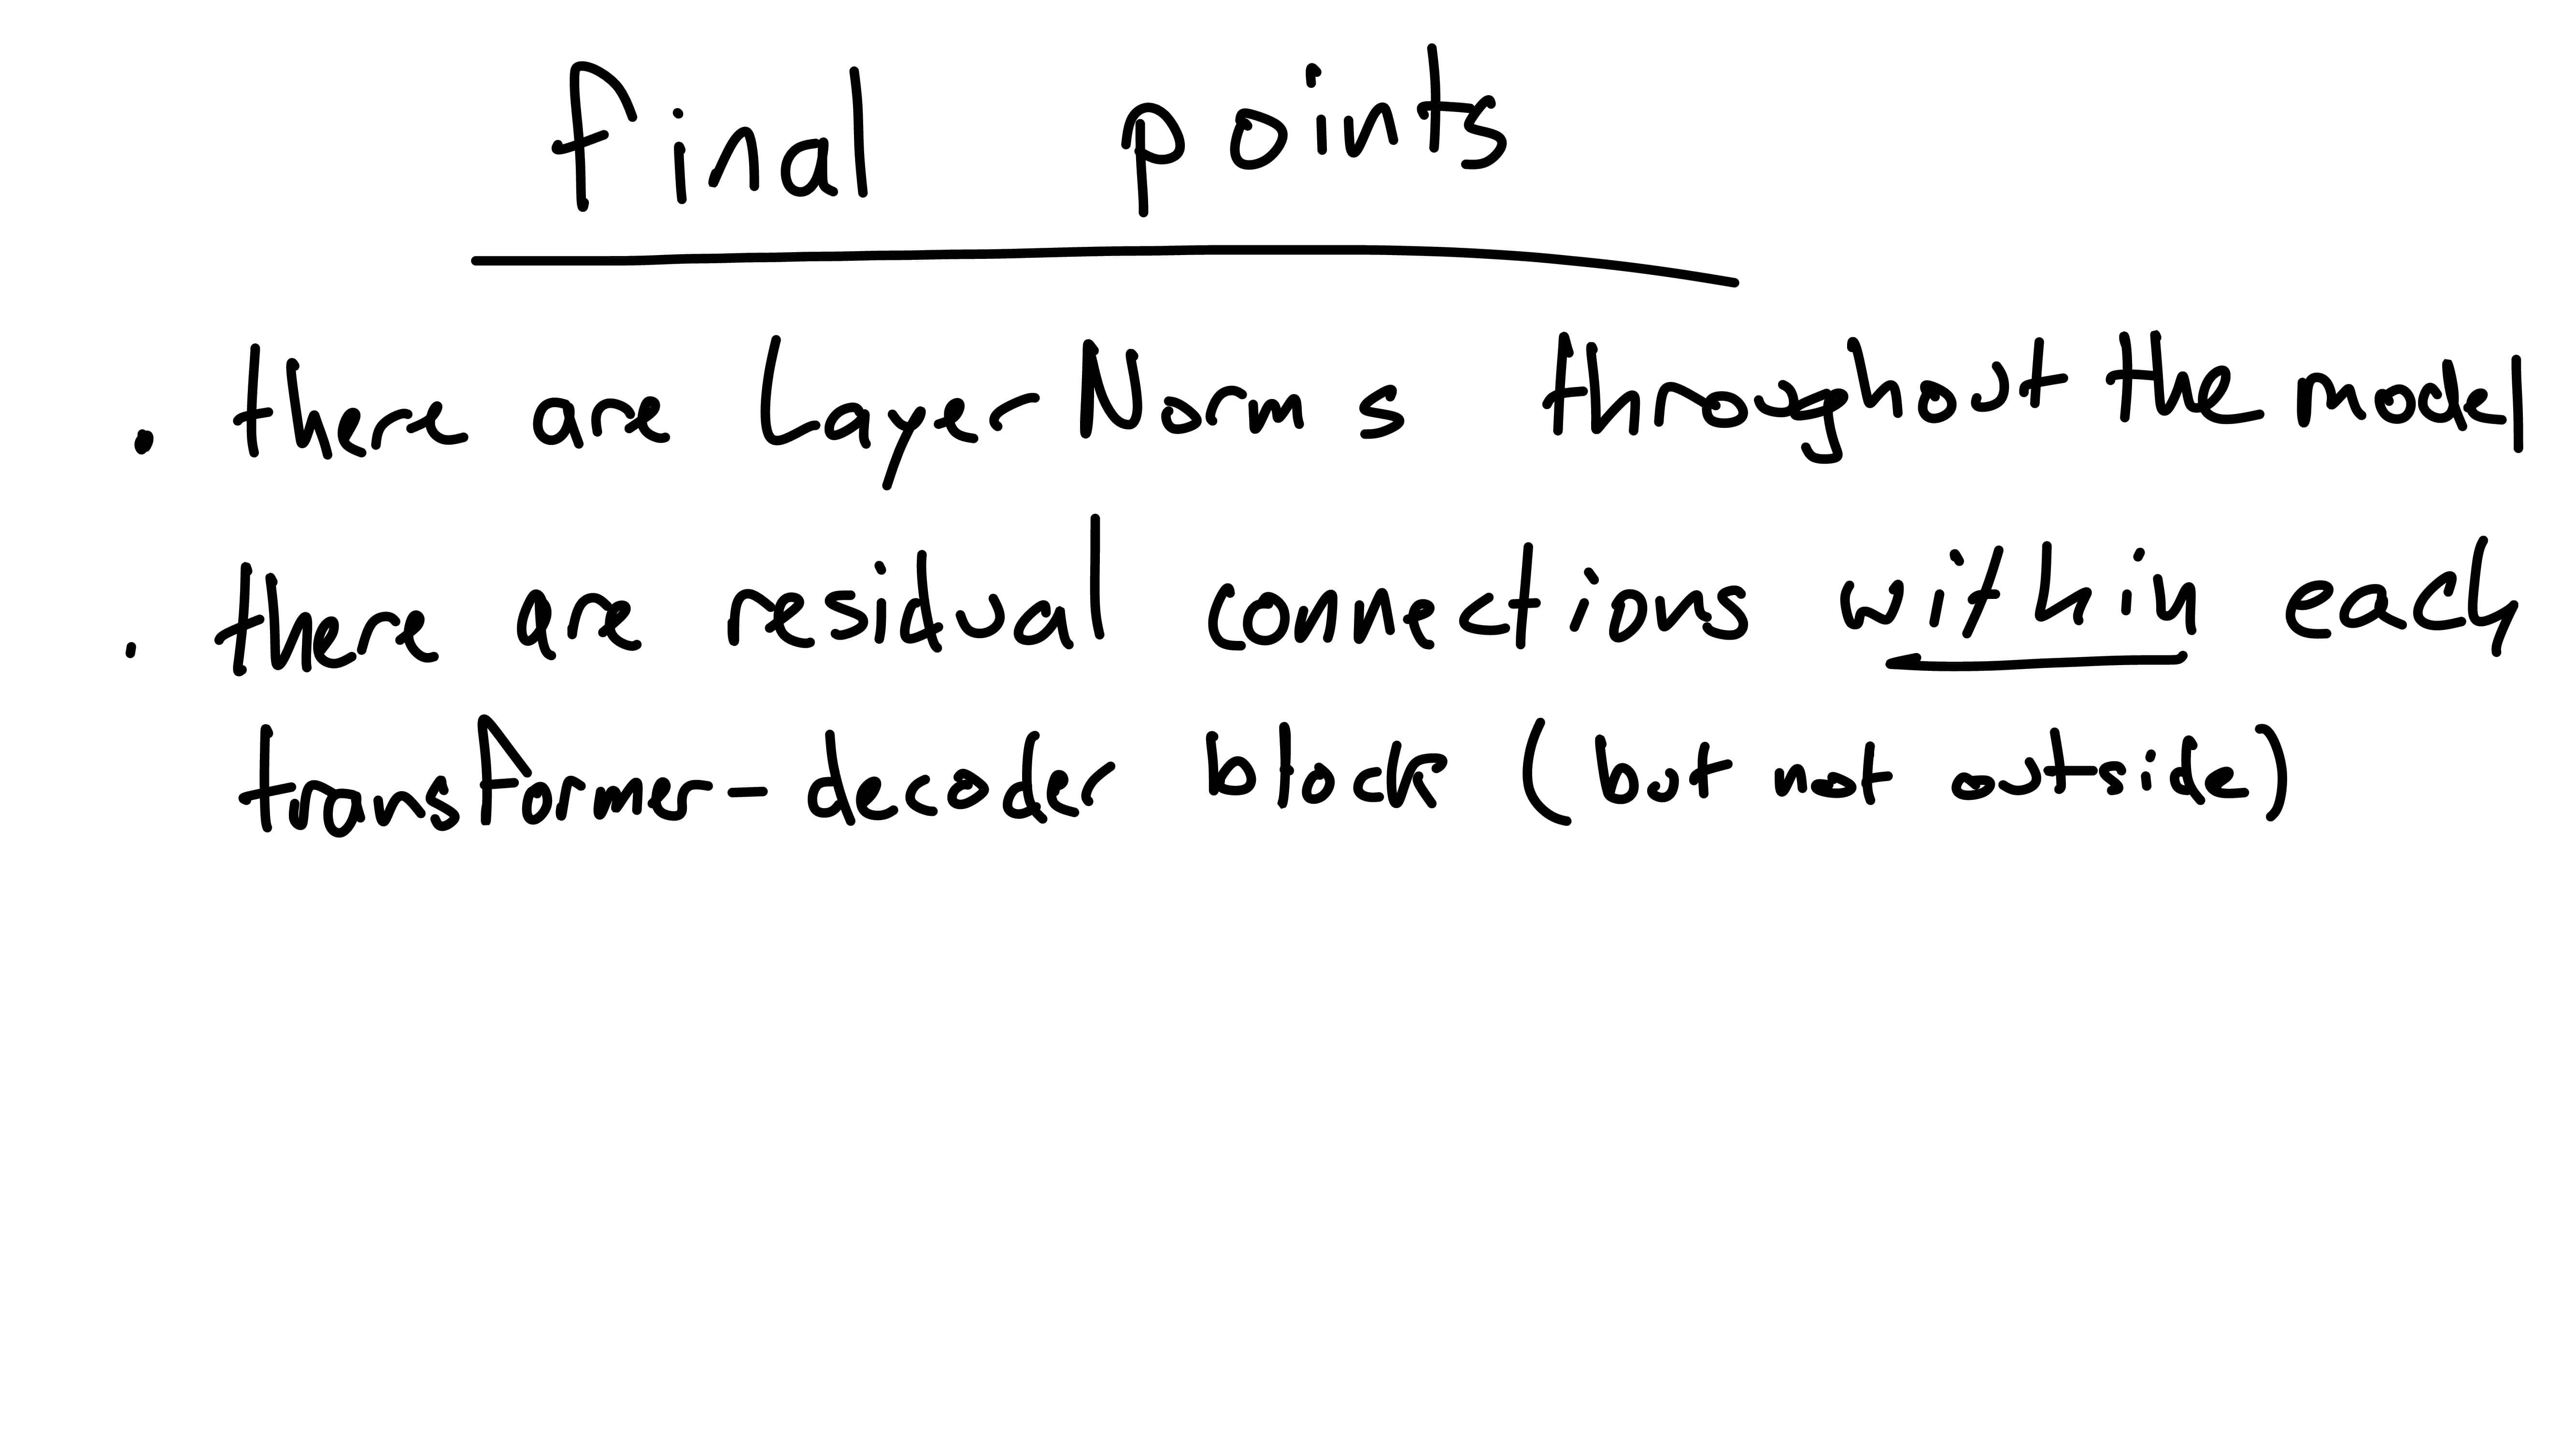 final points
. there are LayerNorms throughout the model
. there are residual connections within each
transformer-decoder block (but not outside)